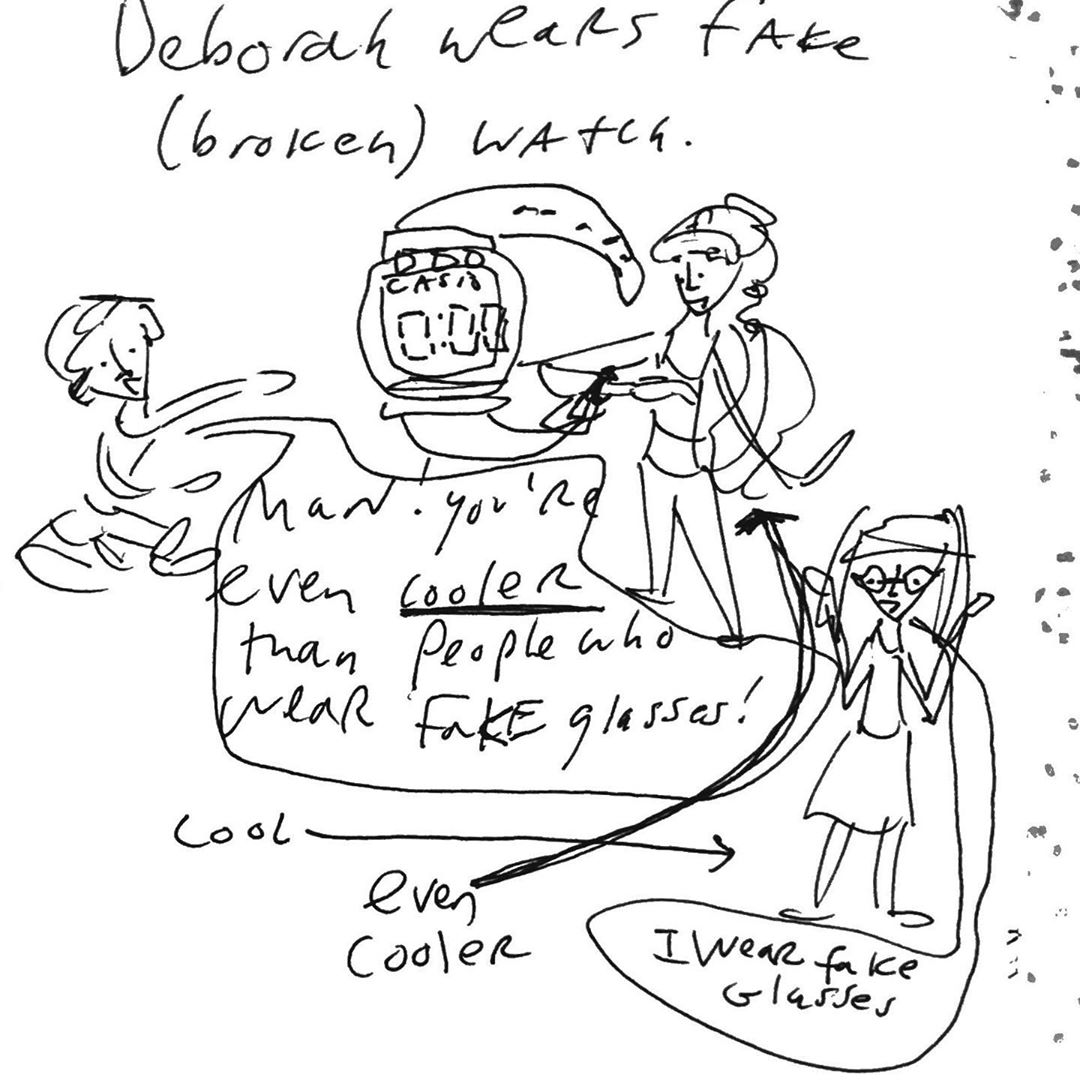 Deborah wears fake
(broken) watch.
CASIO
0:00
Man. you're
even cooler
than people who
wear FAKE glasses!
cool
even
cooler
I wear fake
Glasses